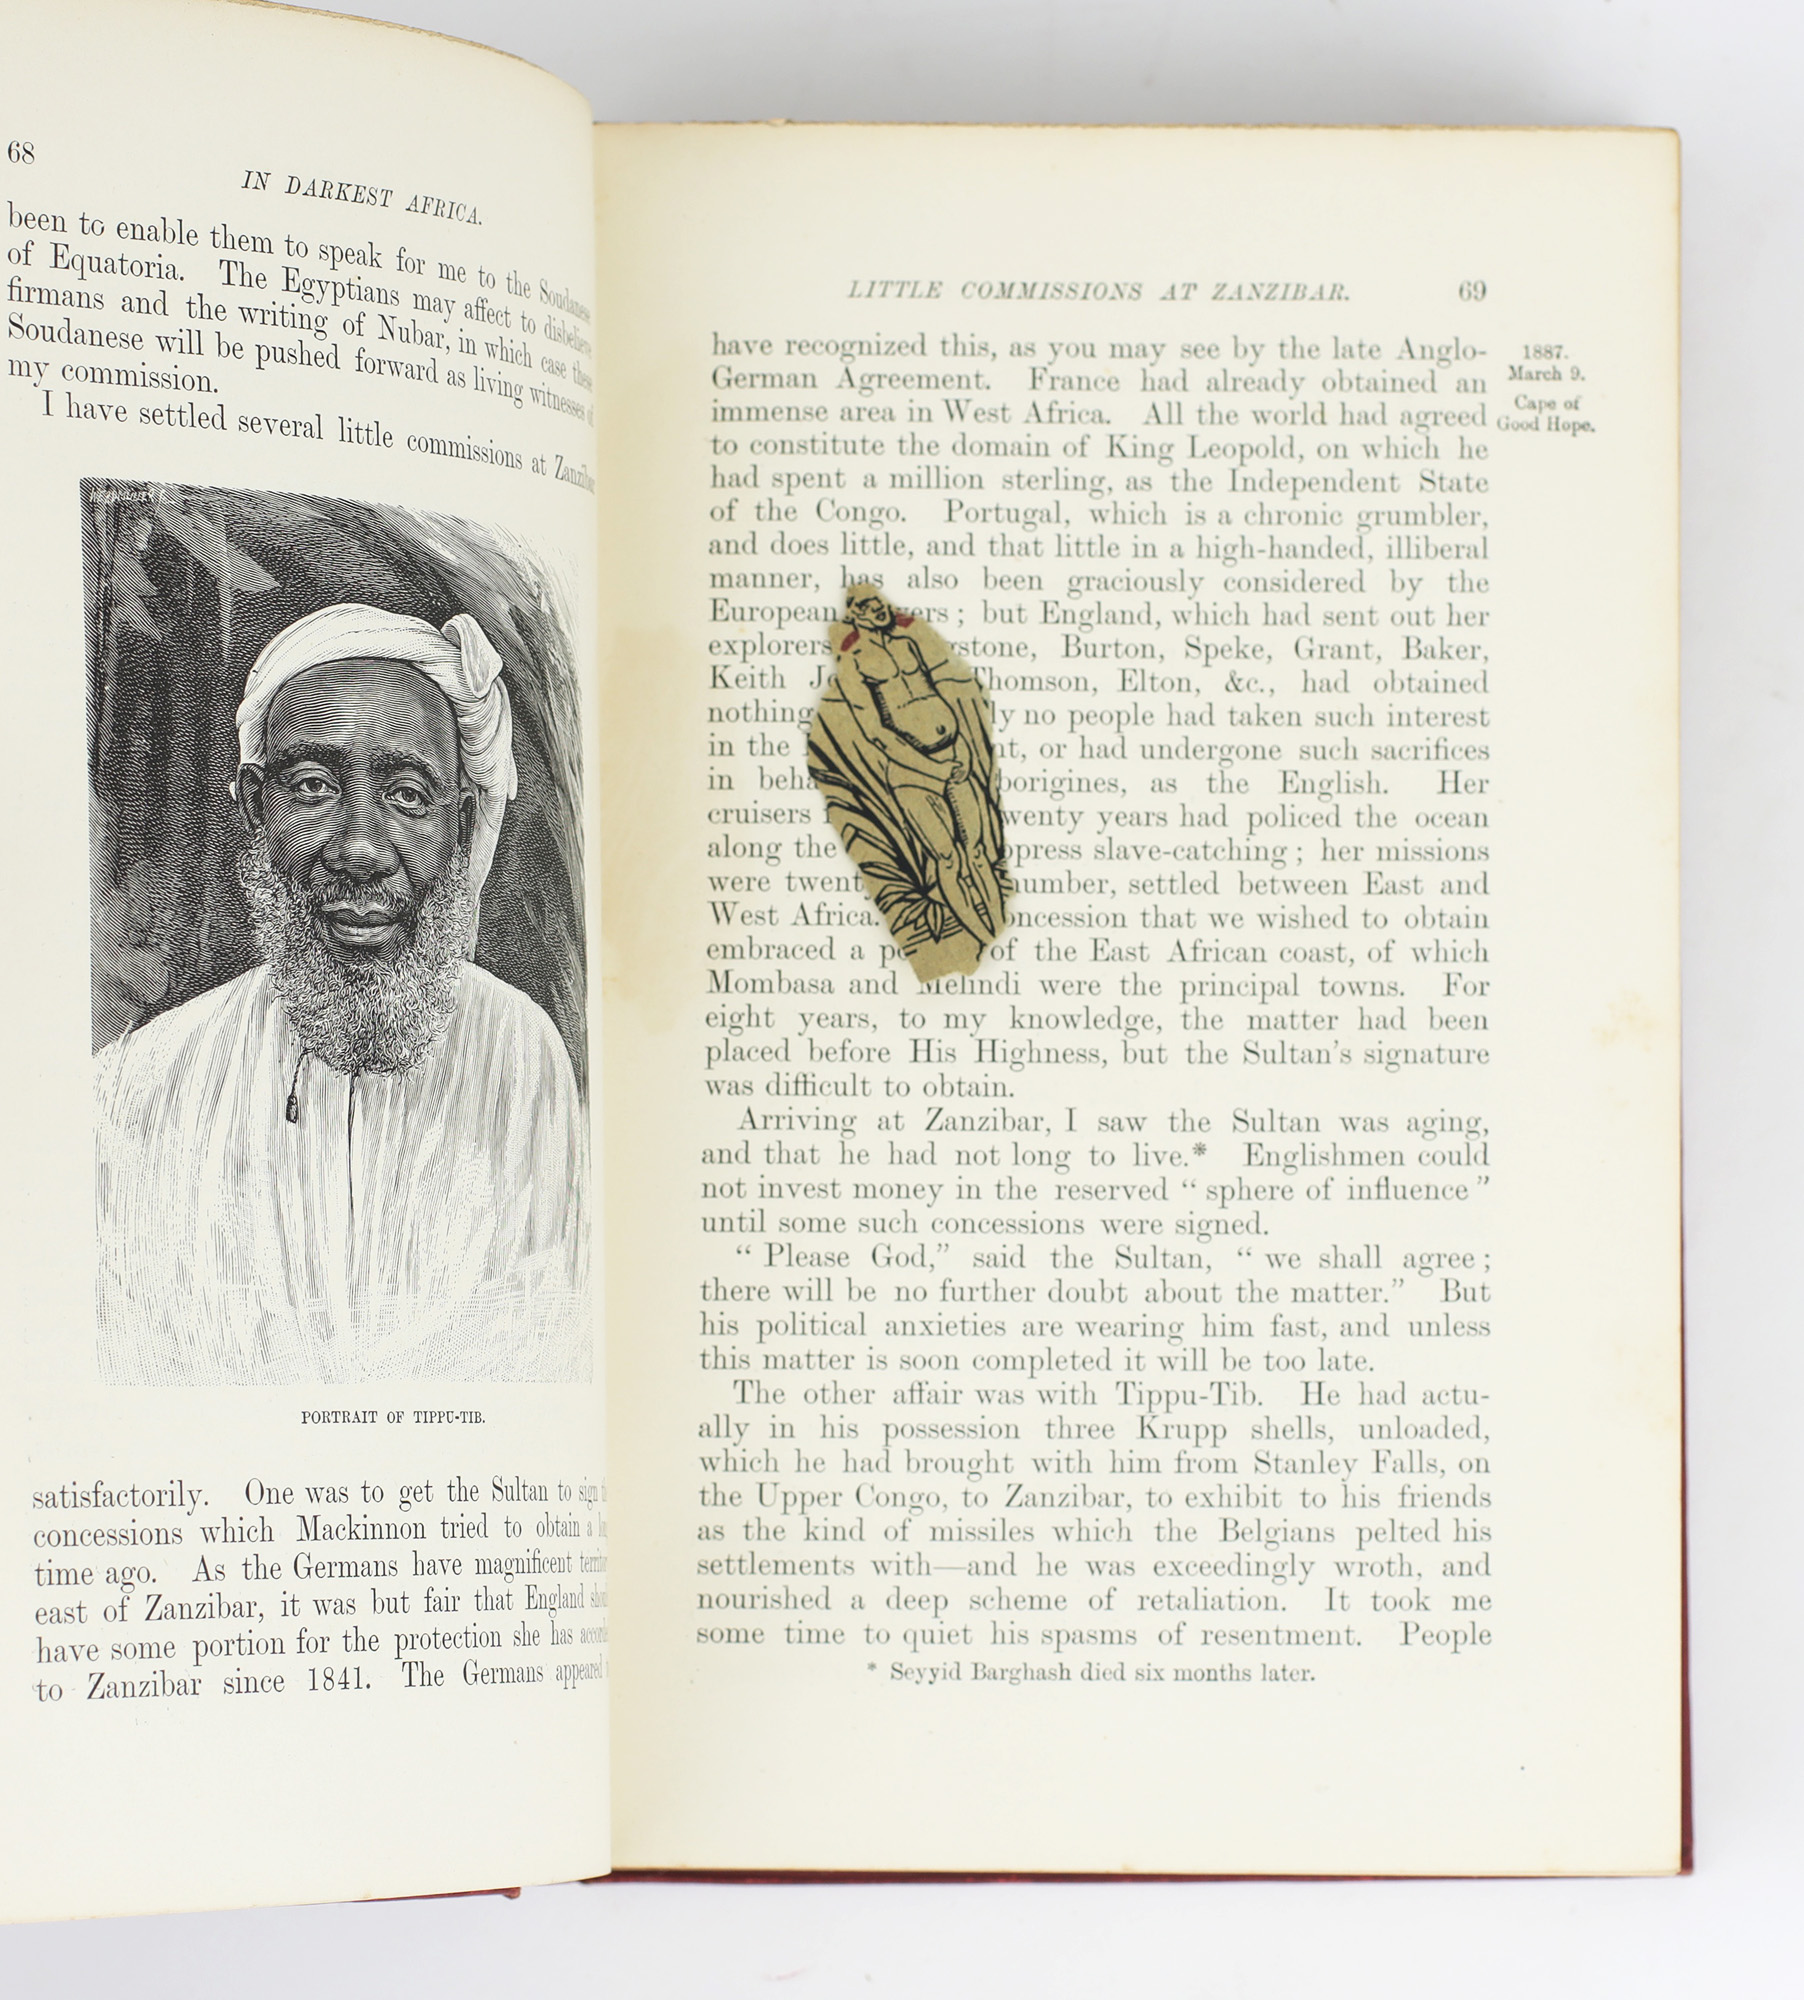 68
IN DARKEST AFRICA.
been to enable them to speak for me to the Soudanese
of Equatoria. The Egyptians may affect to disbelieve
firmans and the writing of Nubar, in which case these
Soudanese will be pushed forward as living witnesses of
my commission.
I have settled several little commissions at Zanzibar
PORTRAIT OF TIPPU-TIB.
satisfactorily. One was to get the Sultan to sign
concessions which Mackinnon tried to obtain a
time ago. As the Germans have magnificent
east of Zanzibar, it was but fair that England
have some portion for the protection she has
to Zanzibar since 1841. The Germans appeared
LITTLE COMMISSIONS AT ZANZIBAR. 69
have recognized this, as you may see by the late Anglo-
German Agreement. France had already obtained an
immense area in West Africa. All the world had agreed
to constitute the domain of King Leopold, on which he
had spent a million sterling, as the Independent State
of the Congo. Portugal, which is a chronic grumbler,
and does little, and that little in a high-handed, illiberal
manner, has also been graciously considered by the
European ; but England, which had sent out her
explorers Burton, Speke, Grant, Baker,
Keith Thomson, Elton, &c., had obtained
nothing no people had taken such interest
in the or had undergone such sacrifices
in as the English. Her
cruisers years had policed the ocean
along the slave-catching; her missions
were number, settled between East and
West Africa. that we wished to obtain
embraced a of the East African coast, of which
Mombasa and Melindi were the principal towns. For
eight years, to my knowledge, the matter had been
placed before His Highness, but the Sultan's signature
was difficult to obtain.
Arriving at Zanzibar, I saw the Sultan was aging,
and that he had not long to live.* Englishmen could
not invest money in the reserved "sphere of influence"
until some such concessions were signed.
"Please God," said the Sultan, "we shall agree;
there will be no further doubt about the matter." But
his political anxieties are wearing him fast, and unless
this matter is soon completed it will be too late.
The other affair was with Tippu-Tib. He had actu-
ally in his possession three Krupp shells, unloaded,
which he had brought with him from Stanley Falls, on
the Upper Congo, to Zanzibar, to exhibit to his friends
as the kind of missiles which the Belgians pelted his
settlements with—and he was exceedingly wroth, and
nourished a deep scheme of retaliation. It took me
some time to quiet his spasms of resentment. People
* Seyyid Barghash died six months later.
1887.
March 9.
Cape of
Good Hope.